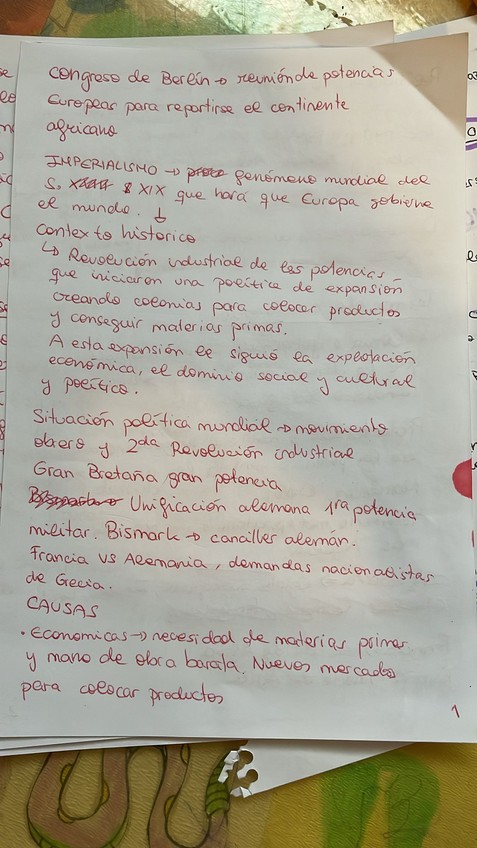 Congreso de Berlín → reunión de potencias
Europeas para repartirse el continente
africano
IMPERIALISMO → fenómeno mundial del
S. XIX que hará que Europa gobierne
el mundo. ↓
Contexto historico
↳ Revolución industrial de las potencias
que iniciaron una política de expansión
creando colonias para colocar productos
y conseguir materias primas.
A esta expansión le siguió la explotación
económica, el dominio social y cultural
y político.
Situación política mundial → movimiento
obrero y 2da Revolución industrial
Gran Bretaña gran potencia
Unificación alemana 1ra potencia
militar. Bismark → canciller alemán.
Francia VS Alemania, demandas nacionalistas
de Grecia.
CAUSAS
· Economicas → necesidad de materias primas
y mano de obra barata. Nuevos mercados
para colocar productos
1